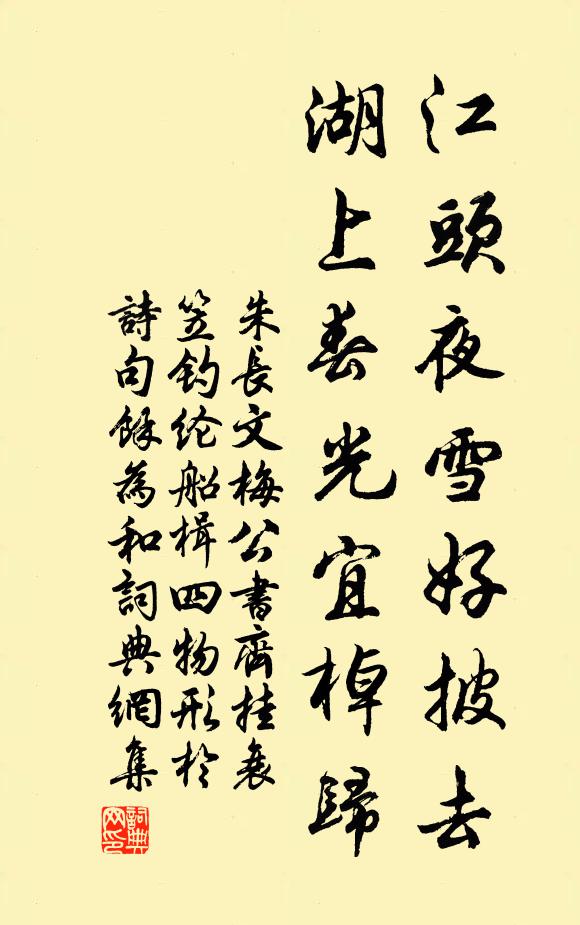 江頭夜雪好披去
湖上春光宜棹歸
朱長文梅公書齋挂蓑
笠釣纶船楫四物形於
詩句余為和詞典網集
詞典網印